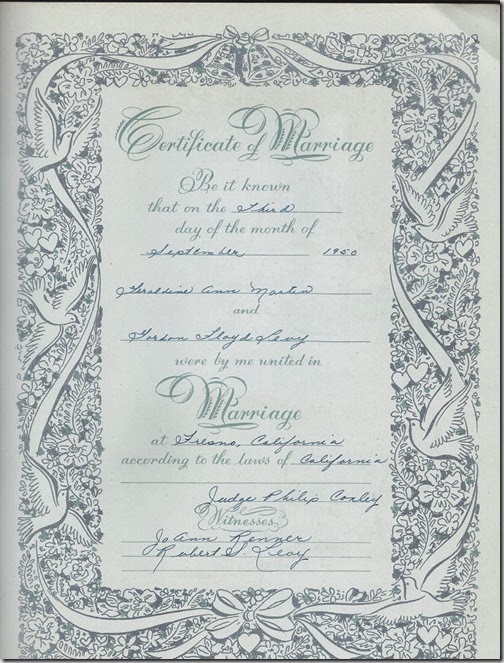 Certificate of Marriage
Be it known
that on the Third
day of the month of
September 1950
Geraldine Ann Martin
and
Gordon Floyd Levy
were by me united in
Marriage
at Fresno, California
according to the laws of California
Judge Philip Conley
Witnesses
JoAnn Renner
Robert D. Levy